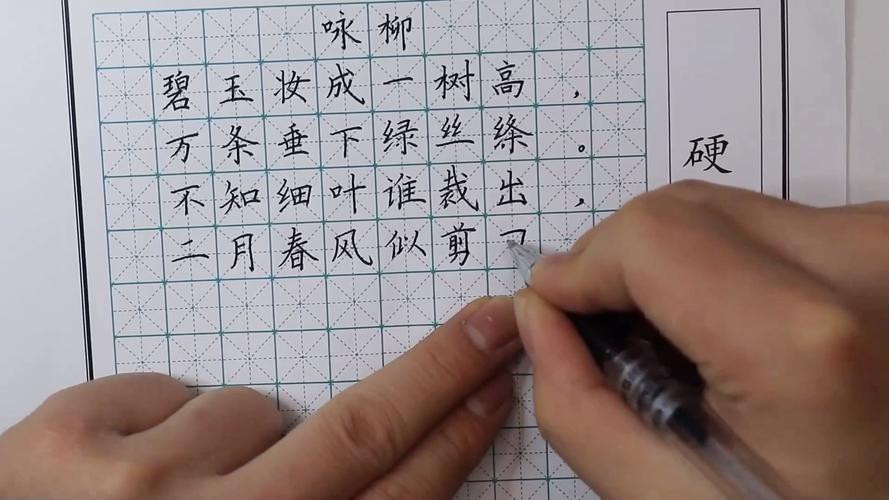 咏柳
碧玉妆成一树高，
万条垂下绿丝绦。
不知细叶谁裁出，
二月春风似剪
硬